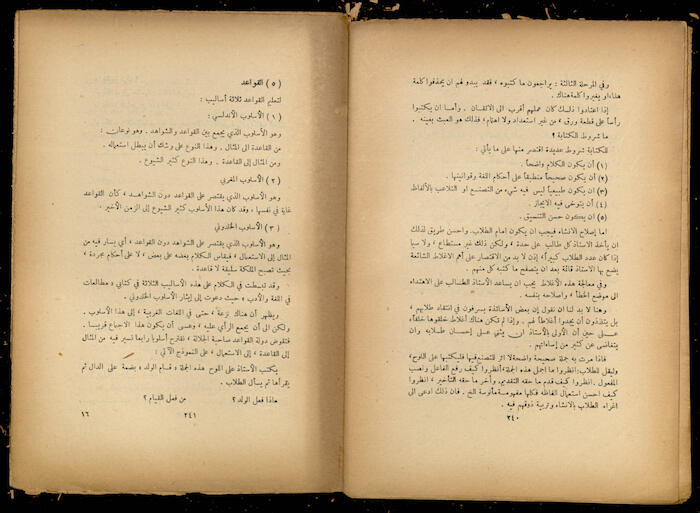 وفي المرحلة الثالثة : يراجعون ما كتبوه ، فقد يبدو لهم ان يحذفوا كلمة
هنا، او يغيروا كلمة هناك .
إذا اعتادوا ذلك كان عملهم أقرب الى الاتقان . وأما ان يكتبوا
رأساً على قطعة ورق ، من غير استعداد ولا اهتمام ، فذلك هو العبث بعينه .
ما شروط الكتابة ؟
للكتابة شروط عديدة اقتصر منها على ما يأتي :
(١) أن يكون الكلام واضحاً .
(٢) أن يكون صحيحاً منطبقاً على أحكام اللغة وقوانينها .
(٣) ان يكون طبيعياً ليس فيه شيء من التصنع او التلاعب بالألفاظ
(٤) أن يتوخى فيه الايجاز .
(٥) ان يكون حسن التنسيق .
اما إصلاح الانشاء فيجب ان يكون امام الطلاب. واحسن طريق لذلك
ان يأخذ الاستاذ كل طالب على حدة ، ولكن ذلك غير مستطاع ، ولا سيا
إذا كان عدد الطلاب كبيراً، إذن لا بد من الاقتصار على أهم الاغلاط الشائعة
يضع بها الاستاذ قائمة بعد ان يتصفح ما كتبه كل منهم .
وفي معالجة هذه الأغلاط يجب ان يساعد الأستاذ الطالب على الاهتداء
الى موضع الخطأ ، واصلاحه بنفسه .
وهنا لا بد لنا ان نقول إن بعض الأساتذة يسرفون في انتقاد طلابهم ،
بل يتلذذون أن يجدوا أغلاطاً لهم . وإذا لم تكن هناك أغلاط خلقوها خلقاً،
على حين أن الأولى بالأستاذ ان يثني على إحسان طلابه وان
يتغاضى عن كثير من إساءاتهم .
فاذا مرت به جملة صحيحة واضحة لا اثر للتصنع فيها فليكتبها على اللوح،
وليقل للطلاب: انظروا ما اجمل هذه الجملة ، أنظروا كيف رفع الفاعل ونصب
المفعول . انظروا كيف قدم ما حقه التقديم، وأخر ما حقه التأخير ، انظروا
كيف احسن استعمال الفاظه فكلها مفهومة مأنوسة الخ . فان ذلك ادعى الى
اغراء الطلاب بالانشاء وتربية ذوقهم فيه .
٢٤٠
( ٥ ) القواعد
لتعليم القواعد ثلاثة أساليب :
( ١ ) الأسلوب الأندلسي :
وهو الأسلوب الذي يجمع بين القواعد والشواهد . وهو نوعان :
من القاعدة الى المثال . وهذا النوع على وشك أن يبطل استعماله .
ومن المثال إلى القاعدة . وهذا النوع كثير الشيوع .
( ٢ ) الأسلوب المغربي
وهو الأسلوب الذي يقتصر على القواعد دون الشواهد ، كأن القواعد
غاية في نفسها ، وقد كان هذا الأسلوب كثير الشيوع إلى الزمن الأخير .
( ٣ ) الأسلوب الخلدوني
وهو الأسلوب الذي يقتصر على الشواهد دون القواعد ، أي يسار فيه من
المثال إلى الاستعمال ، فيقاس الكلام بعضه على بعض ، لا على أحكام مجردة ،
بحيث تصبح الملكة سليقة لا قاعدة .
وقد توسطت في الكلام على هذه الأساليب الثلاثة في كتابي « مطالعات
في اللغة والأدب » حيث دعوت إلى إيثار الأسلوب الخلدوني .
ويظهر أن هناك نزعة ، حتى في اللغات الغربية ، إلى هذا الأسلوب .
ولكن الى أن يجمع الرأي عليه ، وعسى أن يكون هذا الاجماع قريبا،
فتقوض دولة القواعد صاحبة الجلالة ، نقترح أسلوبا رابعا نسير فيه من المثال
إلى القاعدة ، إلى الاستعمال ، على النموذج الآتي :
يكتب الأستاذ على اللوح هذه الجملة ، قام الولد ، بضمة على الدال ثم
يقرأها ثم يسأل الطلاب .
ماذا فعل الولد ؟ من فعل القيام ؟
٢٤١ ١٦